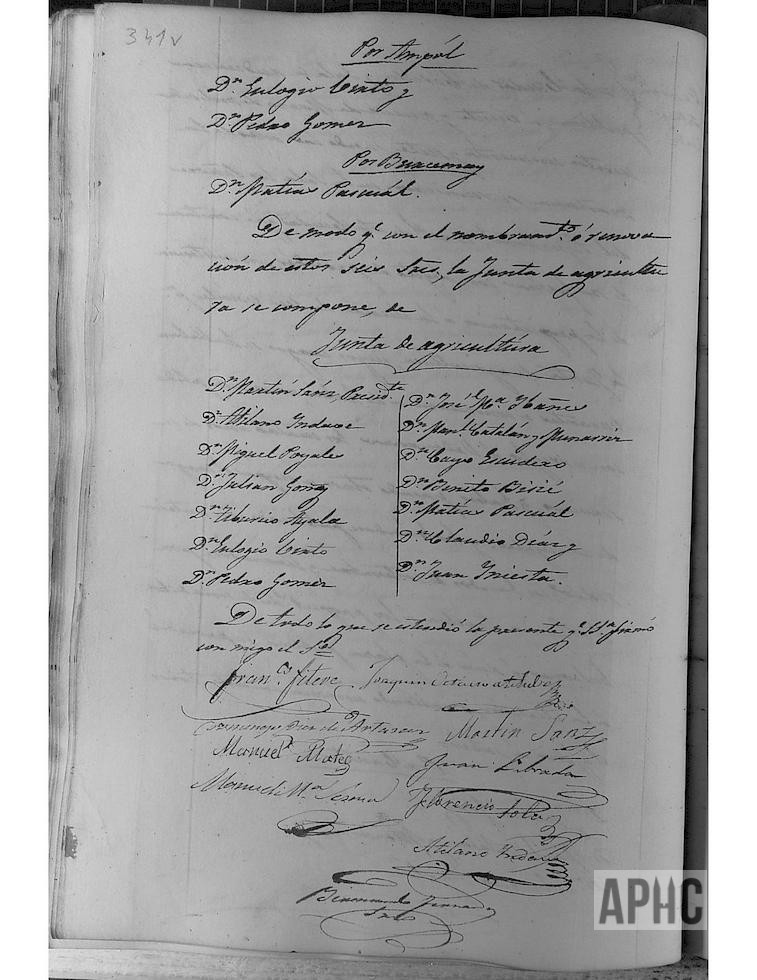 341v
Por Ampól
Dn. Eulogio Cinto y
Dn. Pedro Gomez
Por Buxcemay
Dn. Matías Pascuál.
De modo qe. con el nombramto. ó renova
ción de estos seis Sres, la Junta de agricultu
ra se compone, de
Junta de agricultúra
Dn. Martín Sánz Presidte.
Dn. Atilano
Dn. Miguel Royales
Dn. Julian Goñi
Dn. Tiburcio Ayala
Dn. Eulogio Cinto
Dn. Pedro Gomez
Dn. José Ma. Ybañes
Dn. Manl. Catalán y
Dn. Cayo Escudero
Dn. Benito
Dn. Matías Pascuál
Dn. Claudio Diáz y
Dn. Juan Yniesta.
De todo lo que se estendió la presente qe. S.Sa. firmó
con migo el Srio
Franco. Esteve
Joaquin Octavio de Toledo
Domingo Diez de Artazcoz
Martin Sanz
Manuel Mateo
Juan Librada
Manuel Ma.
Florencio Sola
Atilano
Bienvenido
Srio
APHC